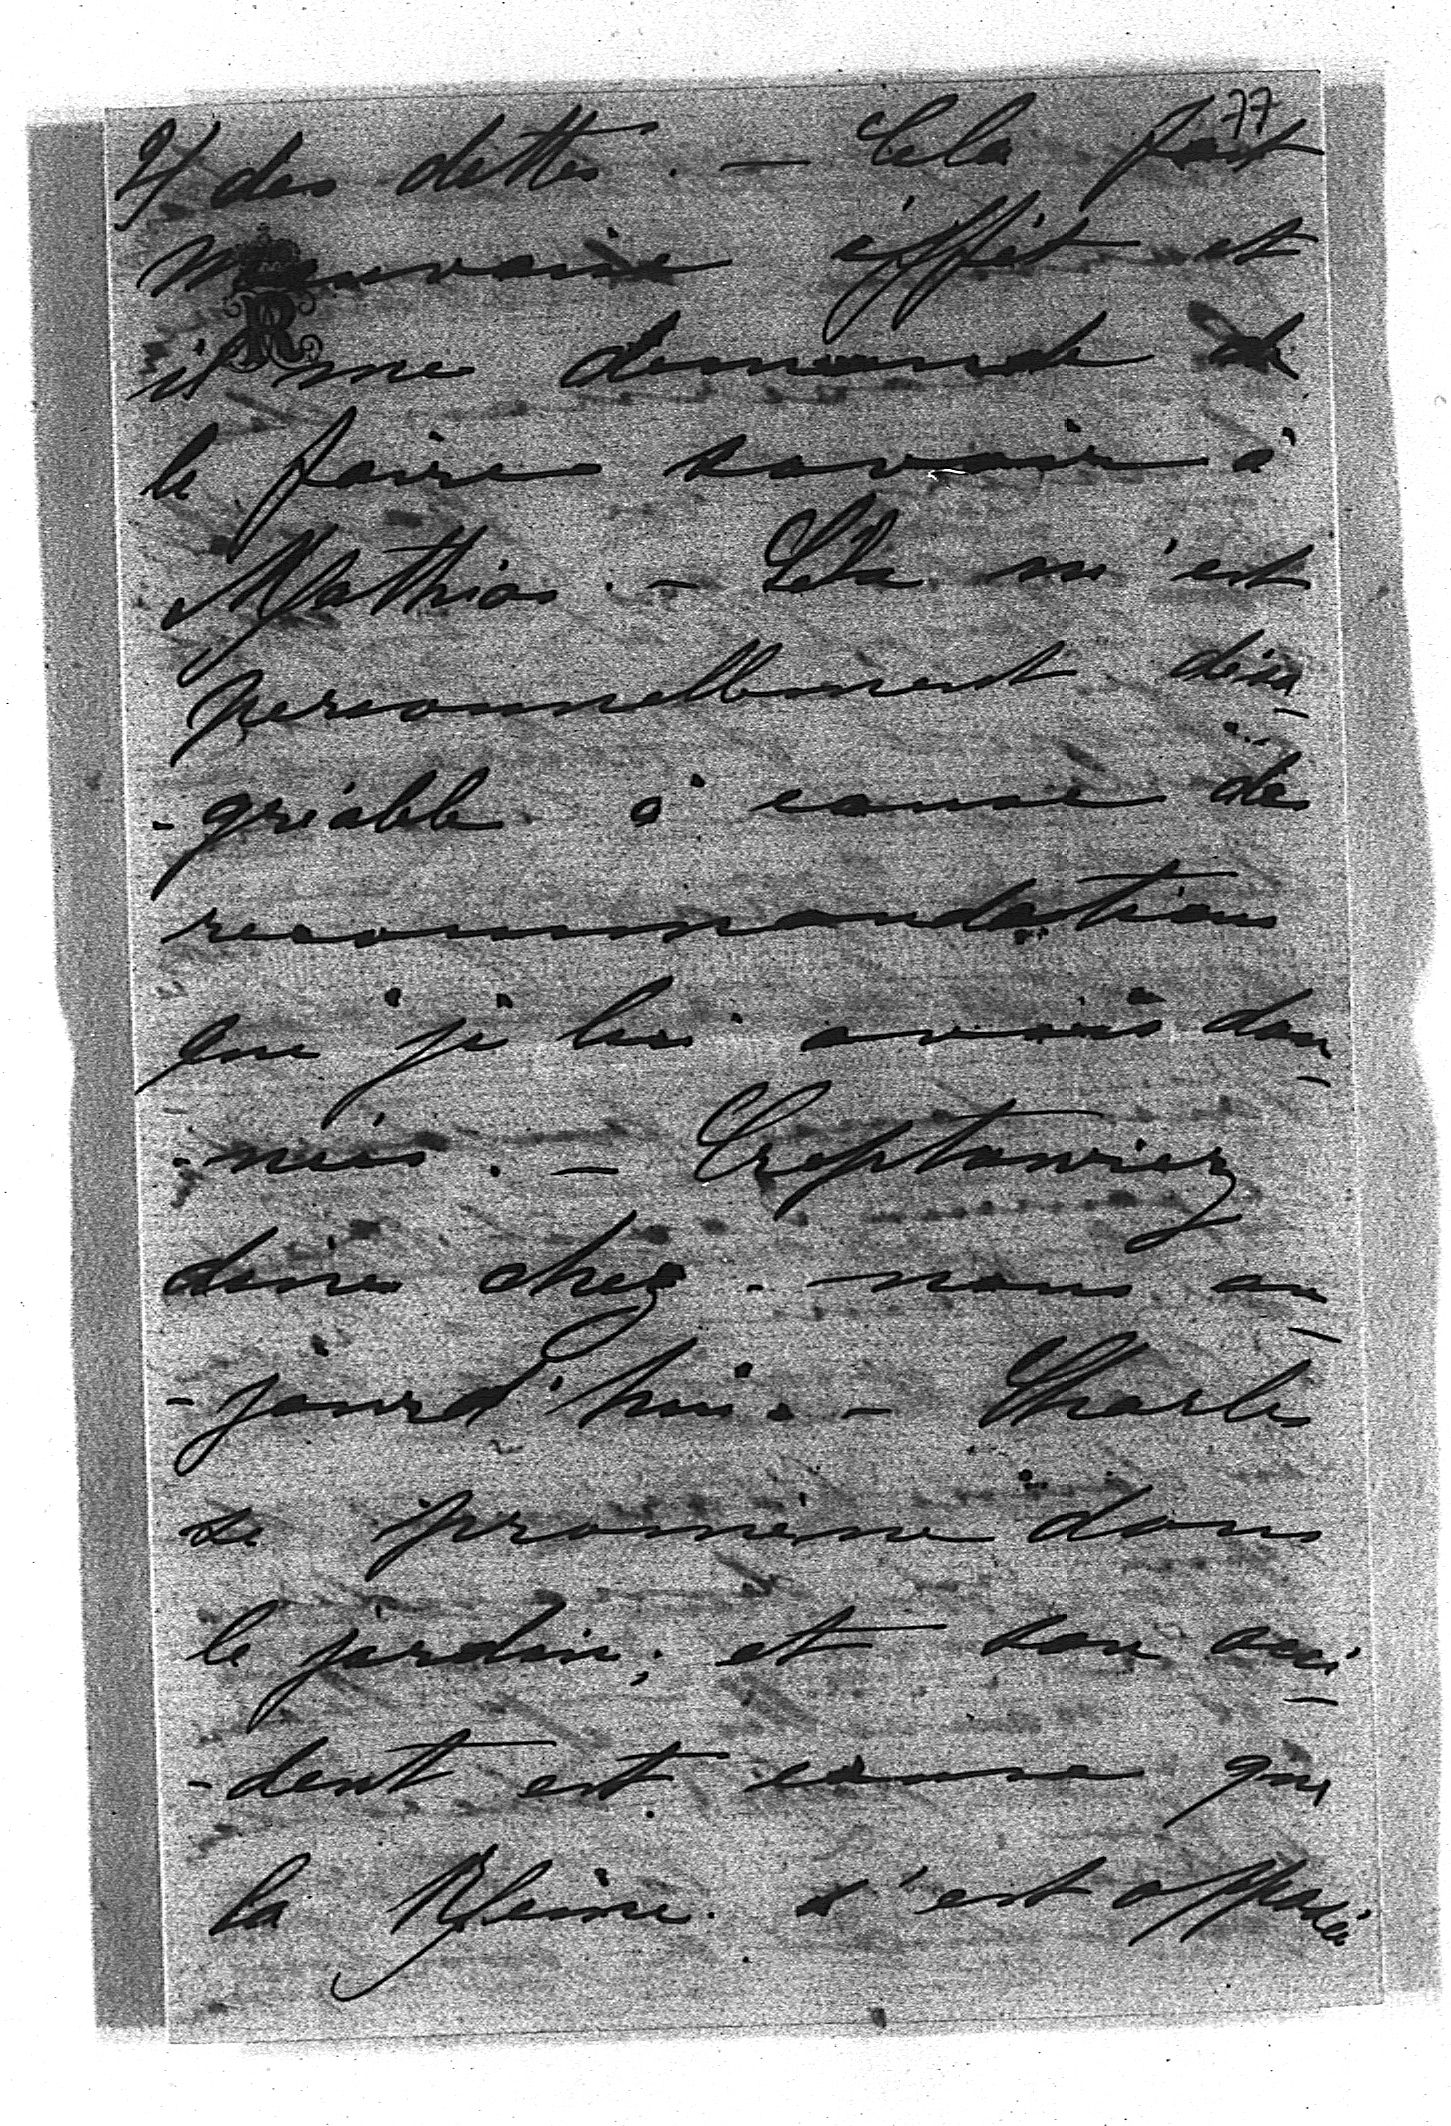 77
4/ des dettes. — Cela fait
mauvaise éffét et
il me demande de
le faire savoir à
Mathias. — Cela m'est
personnellement désa-
-gréable à cause des
recommandations
que je lui avais don-
-nées. — Creptowicz
dine chez nous au-
-jourd'hui. — Charles
se promène dans
le jardin; et son acci-
-dent est cause que
la Reine s'est opposée